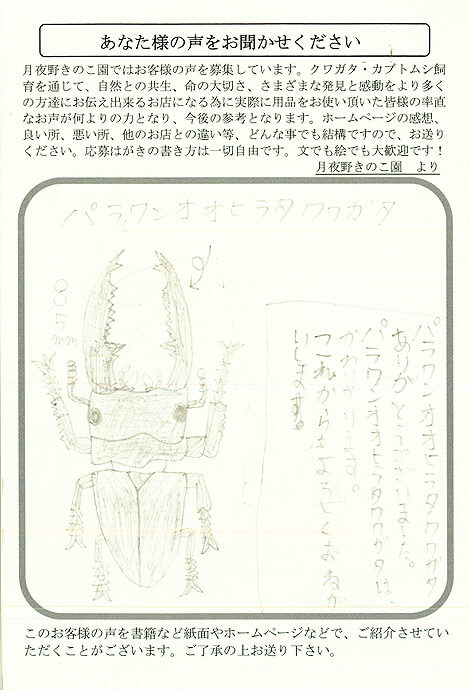 あなた様の声をお聞かせください
月夜野きのこ園ではお客様の声を募集しています。クワガタ・カブトムシ飼
育を通じて、自然との共生、命の大切さ、さまざまな発見と感動をより多く
の方達にお伝え出来るお店になる為に実際に用品をお使い頂いた皆様の率直
なお声が何よりの力となり、今後の参考となります。ホームページの感想、
良い所、悪い所、他のお店との違い等、どんな事でも結構ですので、お送り
ください。応募はがきの書き方は一切自由です。文でも絵でも大歓迎です！
月夜野きのこ園　より
パラワンオオヒラタクワガタ
85mm
パラワンオオヒラタクワガタ
ありがとうございました。
パラワンオオヒラタクワガタは、
これからもよろしくおねが
いします。
このお客様の声を書籍など紙面やホームページなどで、ご紹介させてい
ただくことがございます。ご了承の上お送り下さい。